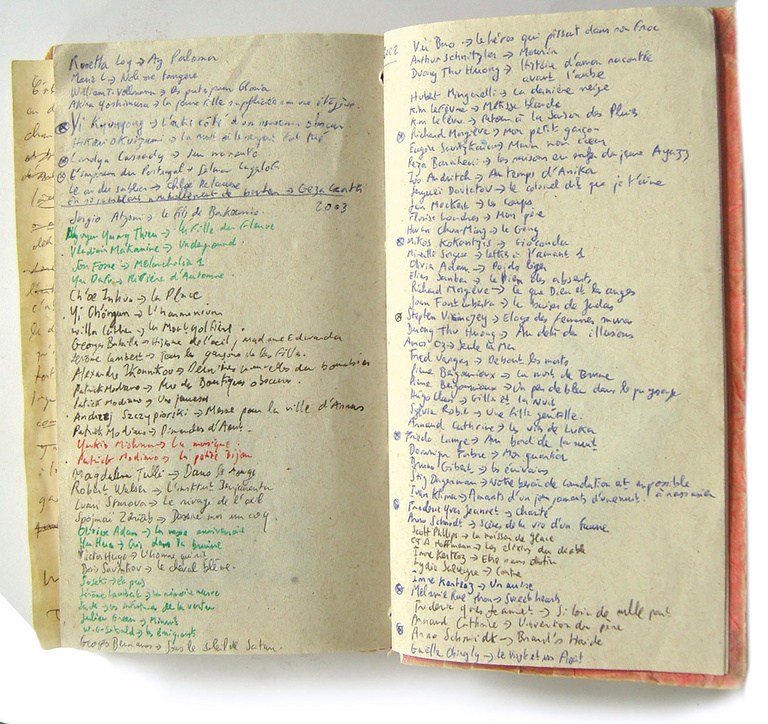 Rosetta Loy → Ay Paloma
Marie L → Noli me tangere
William T. Vollmann → Des putes pour Gloria
Akira Yoshimura → La jeune fille suppliciée sur une étagère.
Yi Kyunyong → L'autre côté d'un souvenir obscur
Hikari Okuizumi → La nuit où le rayon fut tué
Carolyn Cassady → Sur ma route
L'ingénu du Portugal →
Le an du sablier → Chloé Delaume
En se comblant → Géza Csáth
2003
Sergio Atzeni → Le fils de Bakounine.
Nguyen Quang Thieu → La fille du fleuve
Vladimir Makanine → Underground.
Jon Fosse → Melancholia 1
Yu Dafu → Rivière d'Automne.
→ La Place.
Yi Ch'ongjun → L'harmonium
Willa Cather →
Georges Bataille → Histoire de l'oeil, Madame Edwarda
Jérôme Lambert → Tous les garçons et les filles.
Alexandre Ikonnikov → Dernières nouvelles du bourbier
Patrick Modiano → Rue des Boutiques obscures.
Patrick Modiano → Une jeunesse
Andrzej Szczypiorski → Messe pour la ville d'Arras
Patrick Modiano → Dimanches d'Août.
Yukio Mishima → La musique.
Patrick Modiano → La petite bijou
Magdalena Tulli → Dans le rouge
Robert Walser → L'institut Benjamenta
→ Le rivage de l'exil
Spojmaï Zariâb → Dessine moi un coq.
Olivier Adam → La messe anniversaire
Yu Hua → Cris dans la bruine
Victor Hugo → L'homme qui rit
Boris Savinkov → Le cheval blême.
Soseki → Et puis
Jérôme Lambert → La mémoire neuve
Sade → Les infortunes de la vertu
Julien Green → Minuit
W.G. Sebald → Les émigrants
Georges Bernanos → Sous le soleil de Satan.
Vũ Bao → Le héros qui pissait dans son froc
Arthur Schnitzler → Mourir
Duong Thu Huong → Histoire d'amour racontée
avant l'aube
Hubert Mingarelli → La dernière neige
Kim Lefèvre → Métisse blanche
Kim Lefèvre → Retour à la saison des pluies
Richard Morgiève → Mon petit garçon
Eugène Savitzkaya → Marin mon coeur
Reza Barahení → Les saisons en enfer du jeune Ayyaz
Ivo Andritch → Au temps d'Anika
Sergueï Dovlatov → Le colonel dit que je t'aime
Jean Meckert → Les coups
→ Mon père
Huang Chun-Ming → Le Gong
Nikos Kokantzis → Gioconda
Mireille Sorgue → Lettres à l'amant 1
Olivier Adam → Poids léger
Elias Sanbar → Le Bien des absents
Richard Morgiève → Ce que Dieu et les anges
Joan Fontcuberta → Le baiser de Judas
Stephen Vizinczey → Eloge des femmes mures
Duong Thu Huong → Au delà des illusions
Amos Oz → Seule la Mer
Fred Vargas → Debout les morts
Pierre Bergounioux → La mort de Brune
Pierre Bergounioux → Un peu de bleu dans le paysage
Hugo Claus → Gilles et la Nuit
Sylvie Robic → Une fille gentille.
Armand Cathrine → Les vies de Luka
Friedo Lampe → Au bord de la nuit
Dominique Fabre → Mon quartier
Bruno Gibert → Les écrivains
Stig Dagerman → Notre besoin de consolation est impossible
à rassasier
Ivan Klima → Amants d'un jour, amants d'une nuit.
Frédéric Yves Jeannet → Charité
Arno Schmidt → Scènes de la vie d'un Faune
Scott Phillips → La moisson de glace
E.T.A Hoffmann → Les élixirs du diable
Imre Kertesz → Etre sans destin
Lydie Salvayre → Contre
Imre Kertesz → Un autre
Mélanie Rae Thon → Sweethearts
Frédéric Yves Jeannet → Si loin de nulle part
Arnaud Cathrine → L'invention du père
Arno Schmidt → Brand's Haide
→ Le vingt et un Août